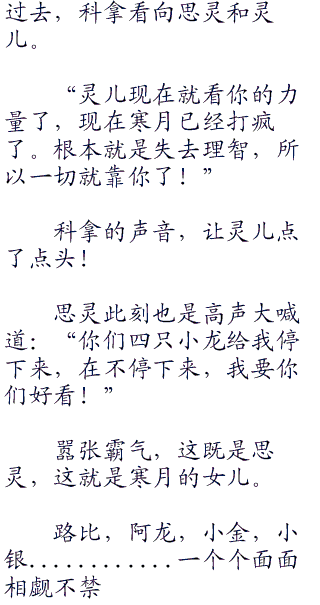 过去，科拿看向思灵和灵
儿。
“灵儿现在就看你的力
量了，现在寒月已经打疯
了。根本就是失去理智，所
以一切就靠你了！”
科拿的声音，让灵儿点
了点头！
思灵此刻也是高声大喊
道：“你们四只小龙给我停
下来，在不停下来，我要你
们好看！”
嚣张霸气，这既是思
灵，这就是寒月的女儿。
路比，阿龙，小金，小
银............一个个面面
相觑不禁